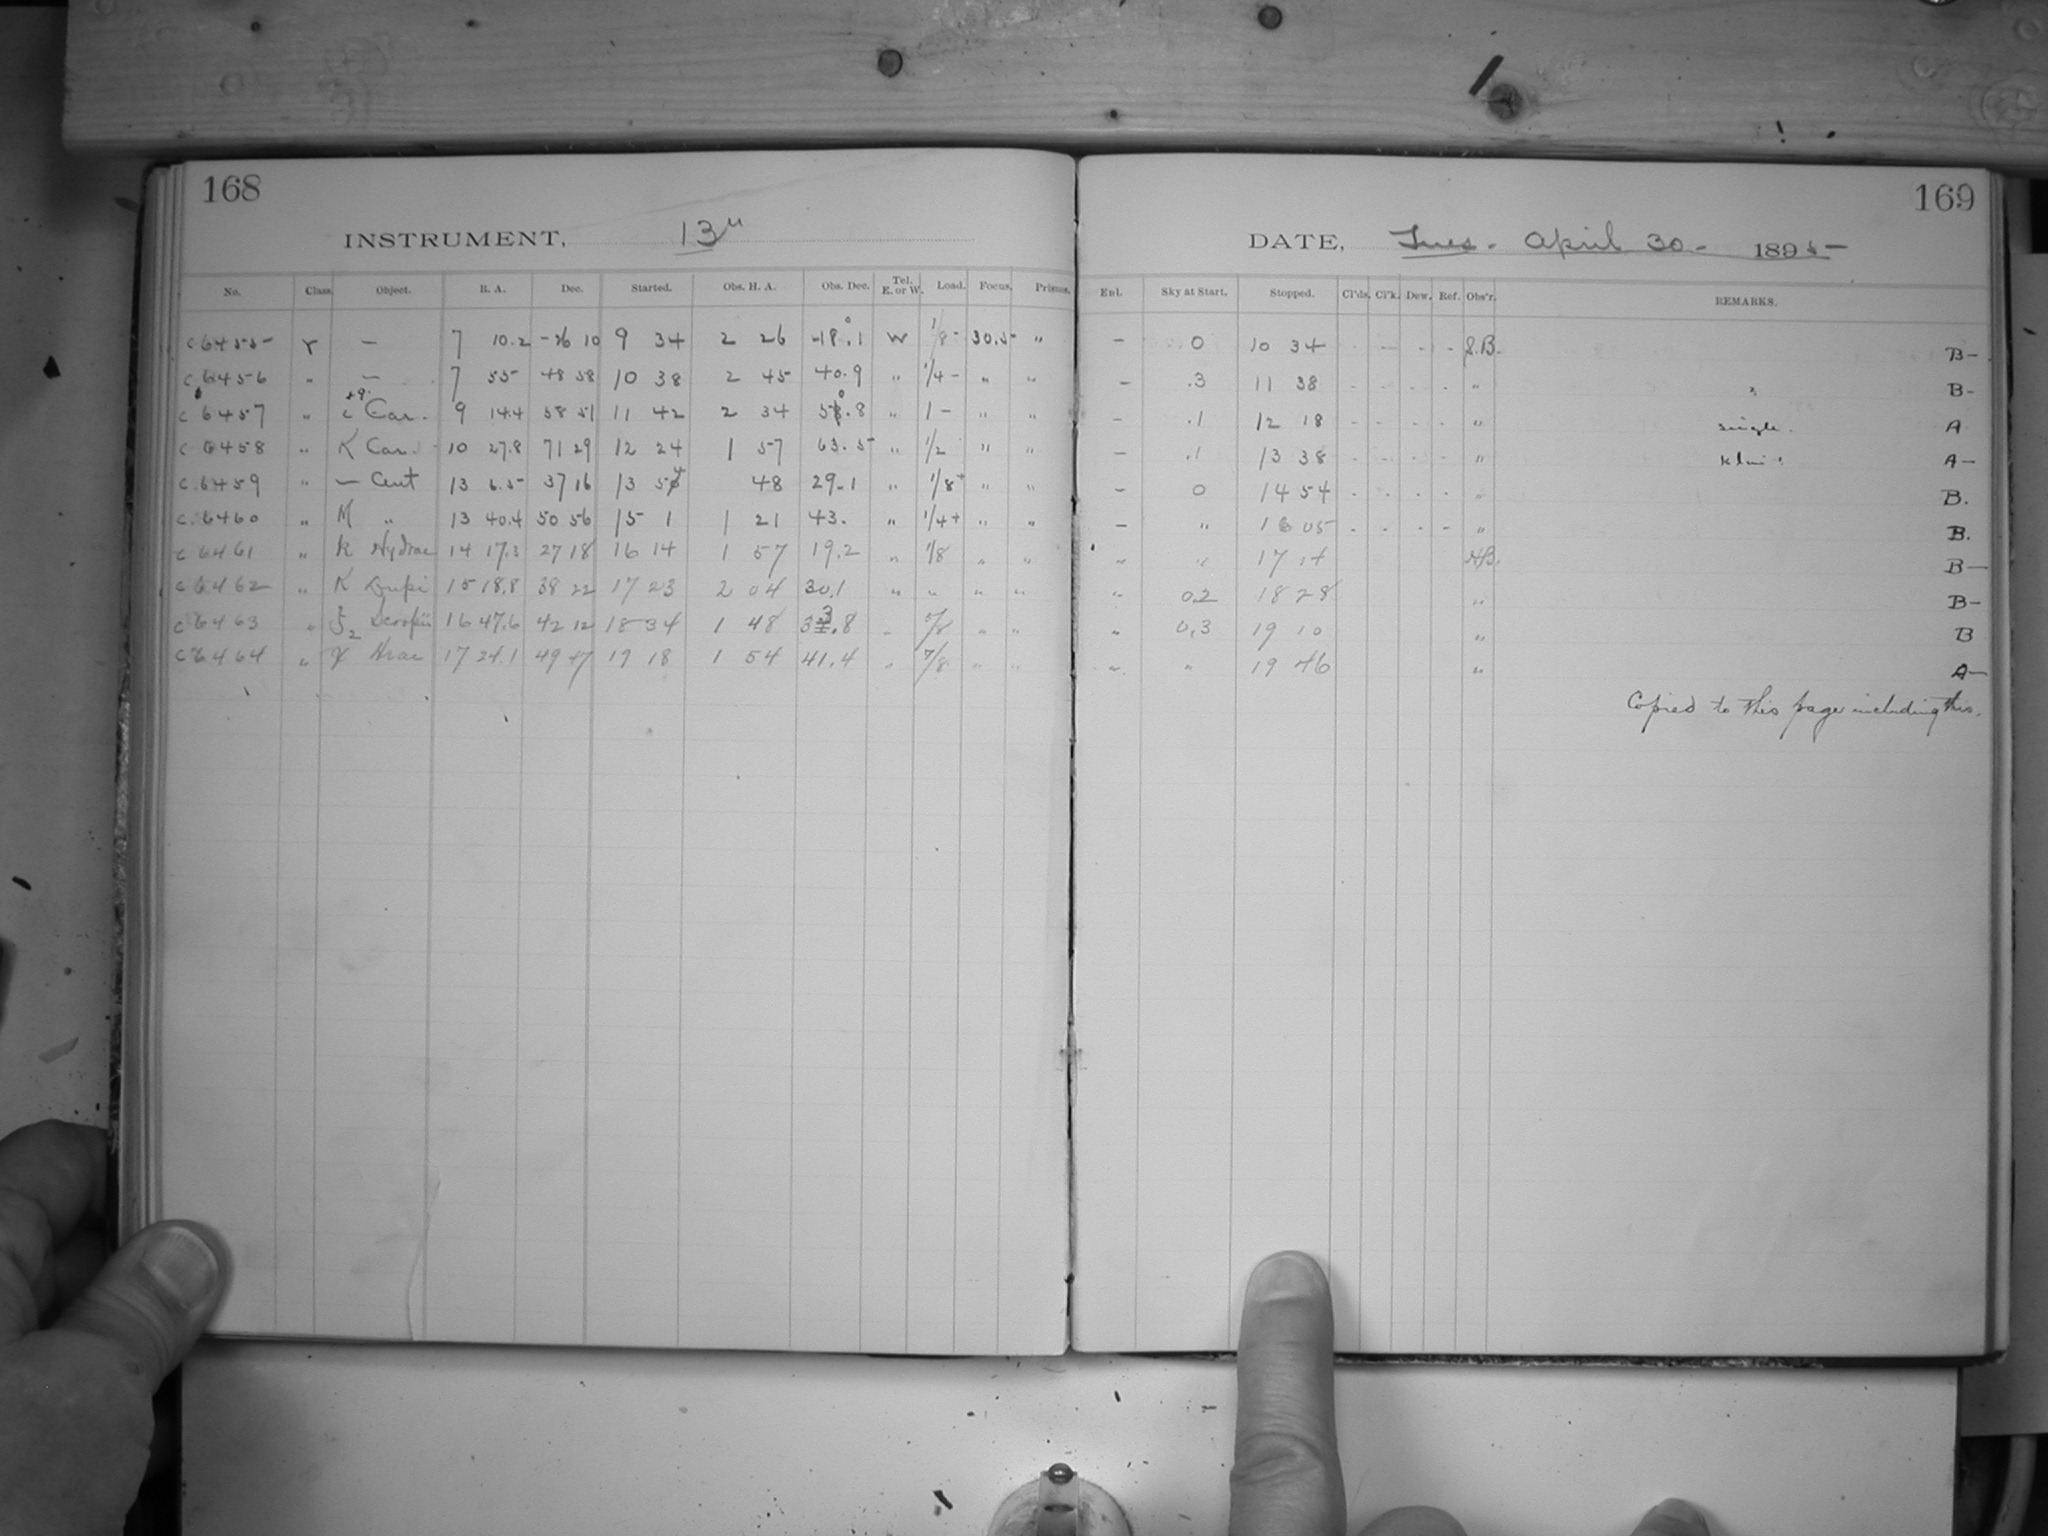 168
INSTRUMENT, 13"
No. Class. Object. R. A. Dec. Started. Obs. H. A. Obs. Dec. Tel. E. or W. Load. Focus. Prisms.
c 6455 r — 7 10.2 -26 10 9 34 2 26 -18.1 W 1/8- 30.5- "
c 6456 " — 7 55 48 58 10 38 2 45 40.9 " 1/4- " "
c 6457 " Car. 9 14.4 58 51 11 42 2 34 .8 " 1- " "
c 6458 " K Car. 10 27.8 71 29 12 24 1 57 63.5 " 1/2 " "
c 6459 " — Cent 13 6.5- 37 16 13 54 48 29.1 " 1/8+ " "
c 6460 " M " 13 40.4 50 56 15 1 1 21 43. " 1/4+ " "
c 6461 " k Hydrae 14 17.3 27 18 16 14 1 57 19.2 " 1/8 " "
c 6462 " K Lupi 15 18.8 38 22 17 23 2 04 30.1 " " " "
c 6463 " ζ2 Scorpii 16 47.6 42 12 18 34 1 48 33.8 " 5/8 " "
c 6464 " Arae 17 24.1 49 47 19 18 1 54 41.4 " 7/8 " "
169
DATE, Tues. April 30- 1895-
Enl. Sky at Start. Stopped. Cl'ds. Cl'k. Dew. Ref. Obs'r. REMARKS.
— 0 10 34 - — - - S.B. B-
— .3 11 38 - - - - " B-
— .1 12 18 - - - - " single. A
— .1 13 38 - - - - " A-
— 0 14 54 - - - - " B.
— " 16 05 - - - - " B.
" " 17 14 B-
" 0.2 18 28 " B-
" 0.3 19 10 " B
" " 19 46 " A-
Copied to this page including this.